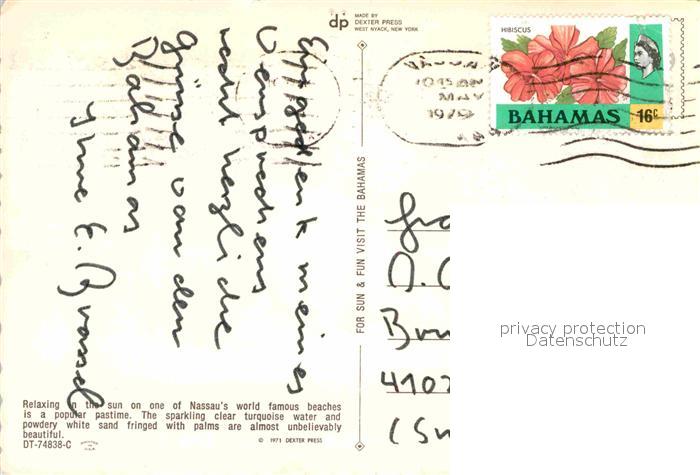 dp
MADE BY
DEXTER PRESS
WEST NYACK, NEW YORK
HIBISCUS
BAHAMAS 16c
meines
Versprechens
recht herzliche
Grüsse von den
Bahamas
Ihre E.
FOR SUN & FUN VISIT THE BAHAMAS
D.
4102
privacy protection
Datenschutz
Relaxing in the sun on one of Nassau's world famous beaches
is a popular pastime. The sparkling clear turquoise water and
powdery white sand fringed with palms are almost unbelievably
beautiful.
DT-74838-C
© 1971 DEXTER PRESS